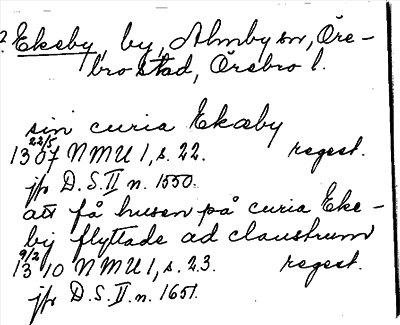 2. Ekeby, by, Almby sn, Öre-
bro stad, Örebro l.
sin curia Ekæby
22/5
1307 NMU 1, s. 22. regest.
jfr D.S. II n. 1550.
att få husen på curia Eke-
bij flyttade ad claustrum
9/2
1310 NMU 1, s. 23. regest.
jfr D.S. II. n. 1651.